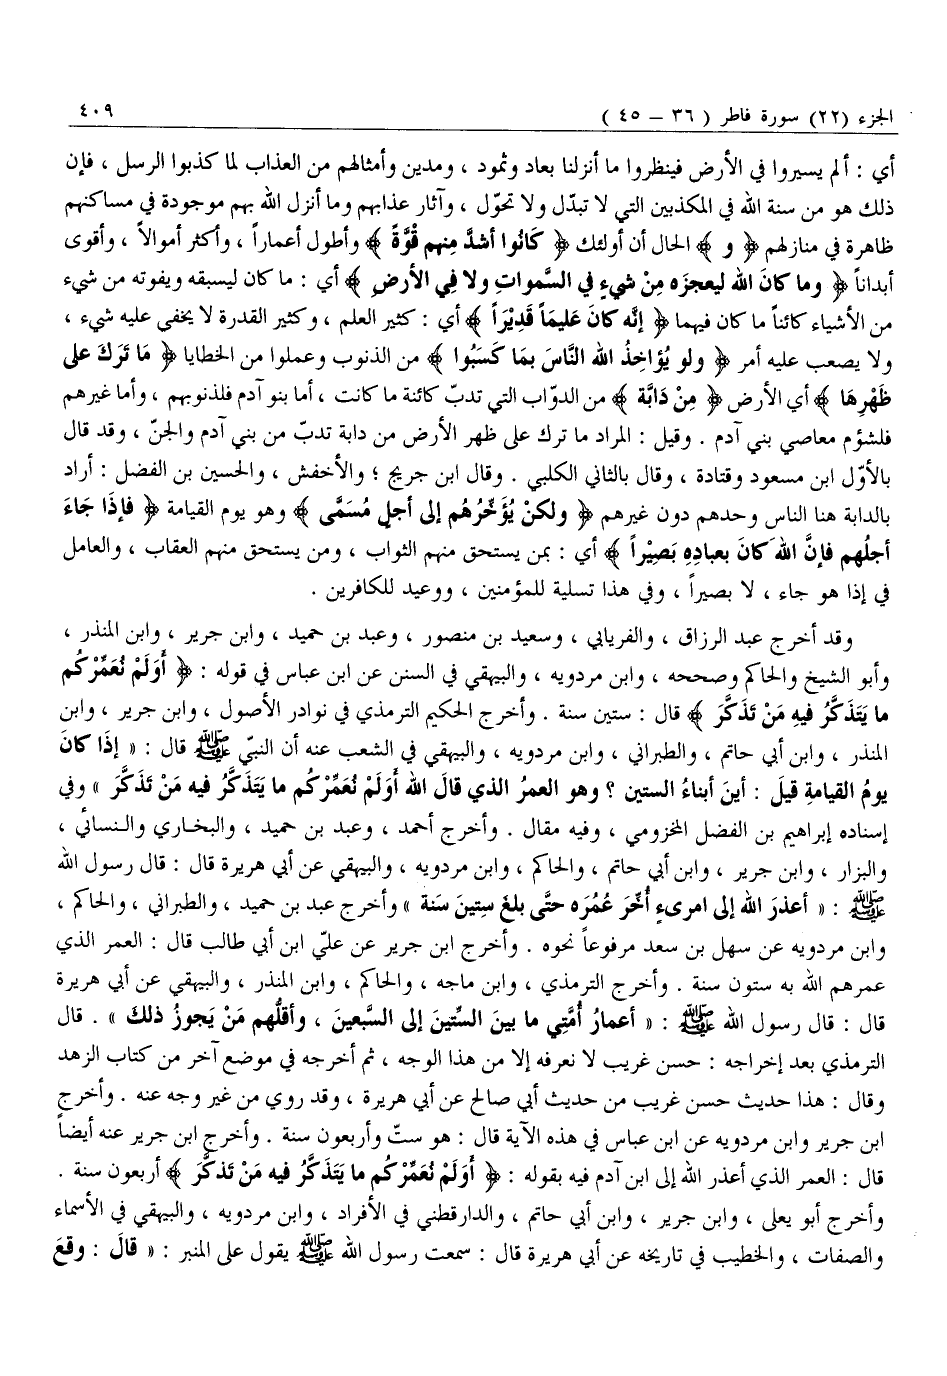 الجزء (٢٢) سورة فاطر ( ٣٦ – ٤٥ ) ٤٠٩
أي : ألم يسيروا في الأرض فينظروا ما أنزلنا بعاد وثمود ، ومدين وأمثالهم من العذاب لما كذبوا الرسل ، فإن
ذلك هو من سنة الله في المكذبين التي لا تبدّل ولا تحوّل ، وآثار عذابهم وما أنزل الله بهم موجودة في مساكنهم
ظاهرة في منازلهم ﴿ و ﴾ الحال أن أولئك ﴿ كَانُوا أشدَّ مِنهم قُوَّةً ﴾ وأطول أعماراً ، وأكثر أموالاً ، وأقوى
أبداناً ﴿ وما كانَ الله ليعجزَه مِنْ شيءٍ في السَّمواتِ ولا فِي الأرضِ ﴾ أي : ما كان ليسبقه ويفوته من شيء
من الأشياء كائناً ما كان فيهما ﴿ إنَّه كانَ عليمَاً قَدِيْرَاً ﴾ أي : كثير العلم ، وكثير القدرة لا يخفى عليه شيء ،
ولا يصعب عليه أمر ﴿ ولو يُؤَاخِذُ الله النَّاسَ بمَا كَسَبُوا ﴾ من الذنوب وعملوا من الخطايا ﴿ مَا تَرَكَ على
ظَهْرِهَا ﴾ أي الأرض ﴿ مِنْ دَابَّة ﴾ من الدوّاب التي تدبّ كائنة ما كانت ، أما بنو آدم فلذنوبهم ، وأما غيرهم
فلشؤم معاصي بني آدم . وقيل : المراد ما ترك على ظهر الأرض من دابة تدبّ من بني آدم والجنّ ، وقد قال
بالأوّل ابن مسعود وقتادة ، وقال بالثاني الكلبي . وقال ابن جريج ؛ والأخفش ، والحسين بن الفضل : أراد
بالدابة هنا الناس وحدهم دون غيرهم ﴿ ولكنْ يُؤَخِّرُهُم إلى أجلٍ مُسَمَّى ﴾ وهو يوم القيامة ﴿ فإذَا جَاءَ
أجلُهم فإنَّ الله كَانَ بعبادِهِ بَصِيْراً ﴾ أي : بمن يستحق منهم الثواب ، ومن يستحق منهم العقاب ، والعامل
في إذا هو جاء ، لا بصيراً ، وفي هذا تسلية للمؤمنين ، ووعيد للكافرين .
وقد أخرج عبد الرزاق ، والفريابي ، وسعيد بن منصور ، وعبد بن حميد ، وابن جرير ، وابن المنذر ،
وأبو الشيخ والحاكم وصححه ، وابن مردويه ، والبيهقي في السنن عن ابن عباس في قوله : ﴿ أَوَلَمْ نُعَمِّرْكُم
ما يَتَذكَّرُ فيه مَنْ تَذكَّرَ ﴾ قال : ستين سنة . وأخرج الحكيم الترمذي في نوادر الأصول ، وابن جرير ، وابن
المنذر ، وابن أبي حاتم ، والطبراني ، وابن مردويه ، والبيهقي في الشعب عنه أن النبيّ ﷺ قال : « إذَا كانَ
يومُ القيامةِ قيلَ : أينَ أبناءُ الستين ؟ وهو العمرُ الذي قالَ الله أَوَلَمْ نُعَمِّرْكُم ما يَتَذكَّرُ فيه مَنْ تَذكَّرَ » وفي
إسناده إبراهيم بن الفضل المخزومي ، وفيه مقال . وأخرج أحمد ، وعبد بن حميد ، والبخاري والنسائي ،
والبزار ، وابن جرير ، وابن أبي حاتم ، والحاكم ، وابن مردويه ، والبيهقي عن أبي هريرة قال : قال رسول الله
ﷺ : « أعذرَ الله إلى امرىءٍ أُخِّرَ عُمُرَه حتَّى بلغَ ستِينَ سَنَة » وأخرج عبد بن حميد ، والطبراني ، والحاكم ،
وابن مردويه عن سهل بن سعد مرفوعاً نحوه . وأخرج ابن جرير عن عليّ ابن أبي طالب قال : العمر الذي
عمرهم الله به ستون سنة . وأخرج الترمذي ، وابن ماجه ، والحاكم ، وابن المنذر ، والبيهقي عن أبي هريرة
قال : قال رسول الله ﷺ : « أعمارُ أُمَّتِي ما بينَ السِّتِينَ إلى السَّبعينَ ، وأقلُّهم مَنْ يَجوزُ ذلكَ » . قال
الترمذي بعد إخراجه : حسن غريب لا نعرفه إلا من هذا الوجه ، ثم أخرجه في موضع آخر من كتاب الزهد
وقال : هذا حديث حسن غريب من حديث أبي صالح عن أبي هريرة ، وقد روي من غير وجه عنه . وأخرج
ابن جرير وابن مردويه عن ابن عباس في هذه الآية قال : هو ستّ وأربعون سنة . وأخرج ابن جرير عنه أيضاً
قال : العمر الذي أعذر الله إلى ابن آدم فيه بقوله : ﴿ أَوَلَمْ نُعَمِّرْكُم ما يَتَذكَّرُ فيه مَنْ تَذكَّرَ ﴾ أربعون سنة .
وأخرج أبو يعلى ، وابن جرير ، وابن أبي حاتم ، والدارقطني في الأفراد ، وابن مردويه ، والبيهقي في الأسماء
والصفات ، والخطيب في تاريخه عن أبي هريرة قال : سمعت رسول الله ﷺ يقول على المنبر : « قالَ : وقعَ